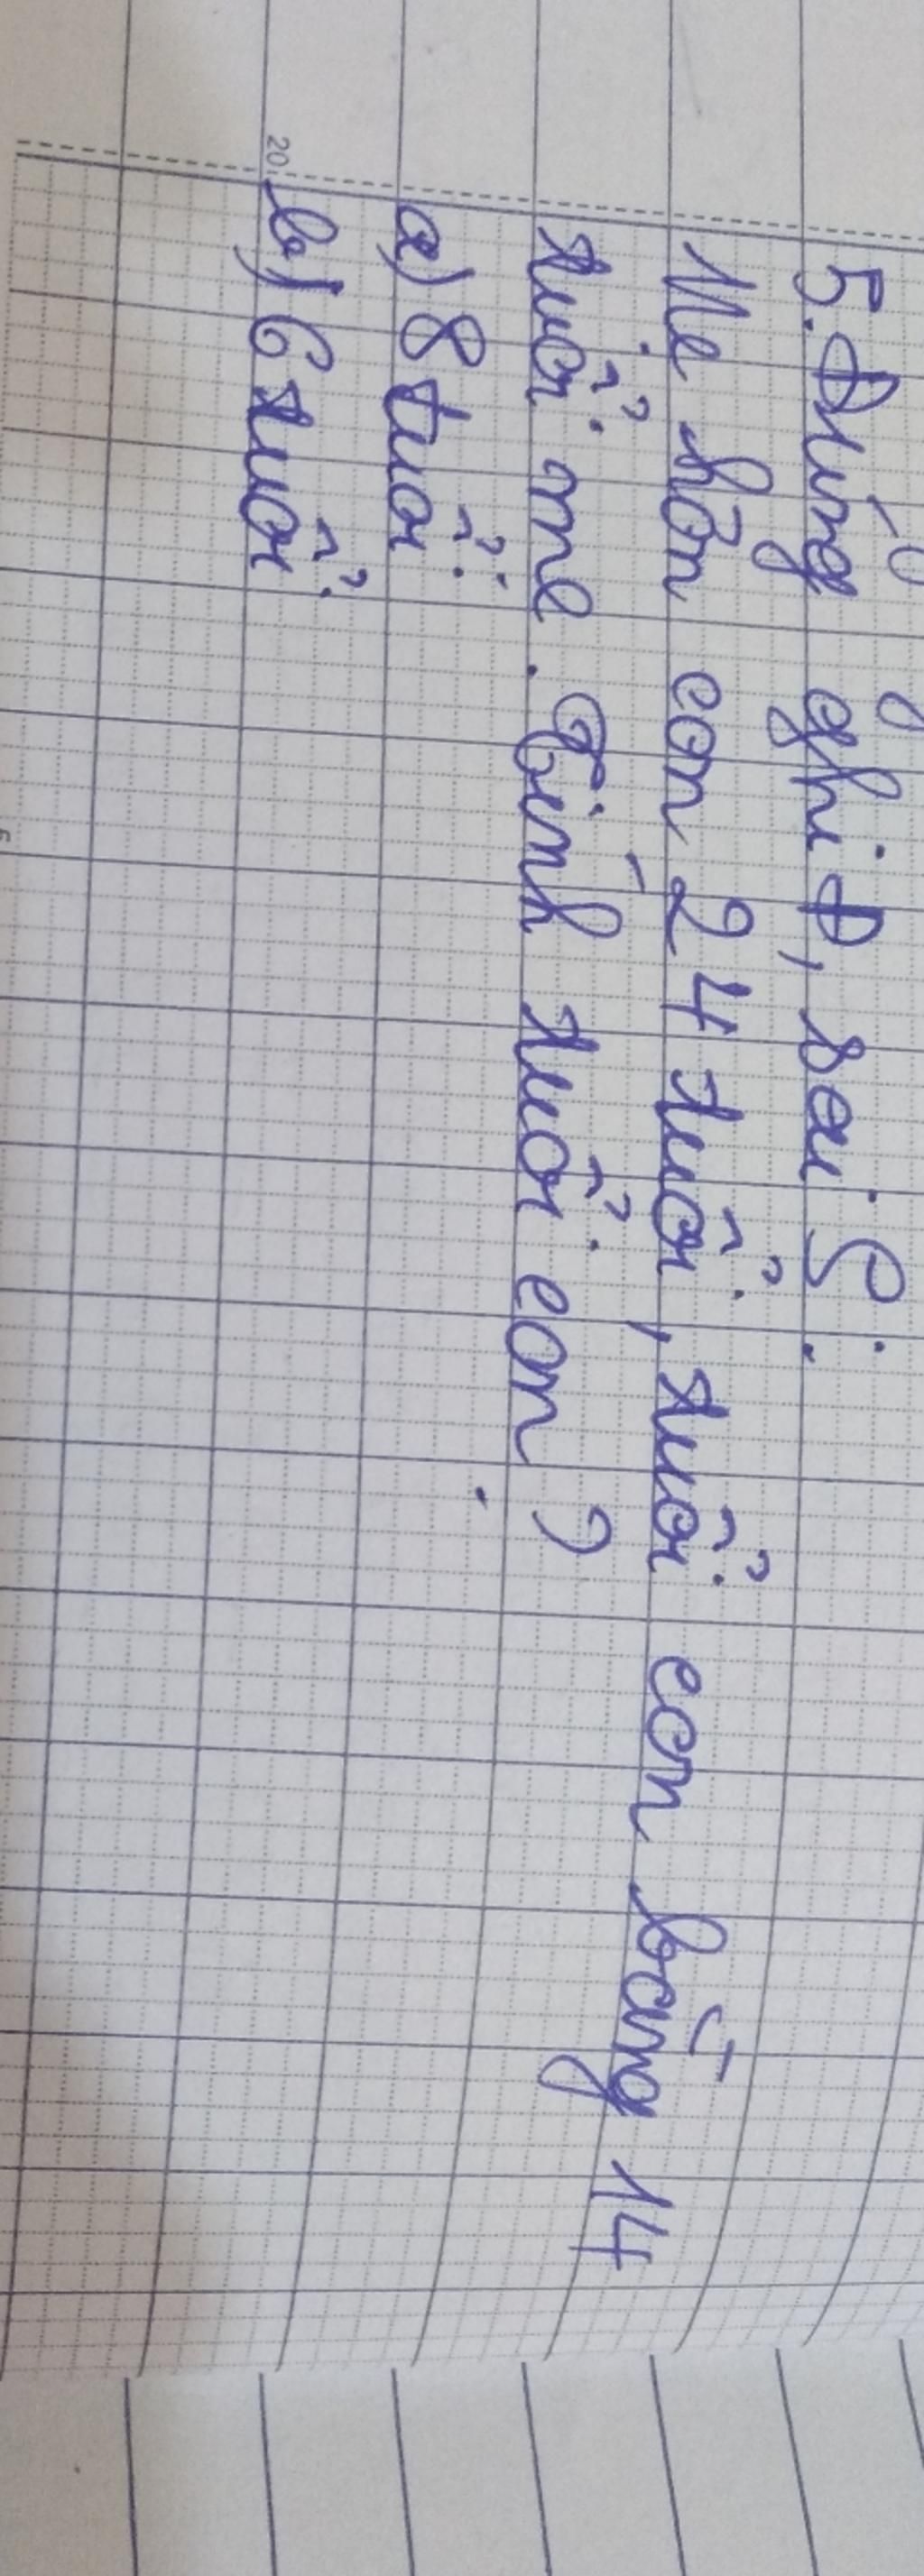 5. Đúng ghi Đ, sai S:
Mẹ hơn con 24 tuổi, tuổi con bằng 14
tuổi mẹ. Tính tuổi con?
a) 8 tuổi
b) 6 tuổi
20